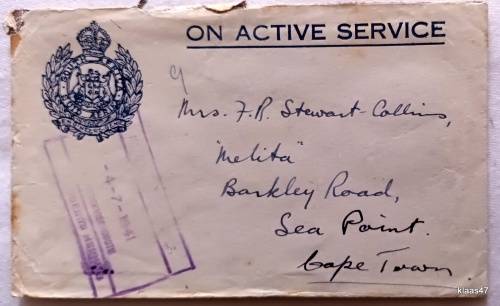 ON ACTIVE SERVICE
Mrs. F.R. Stewart-Collins,
"Melita"
Barkley Road,
Sea Point.
Cape Town
-4-7-1941
klaas47